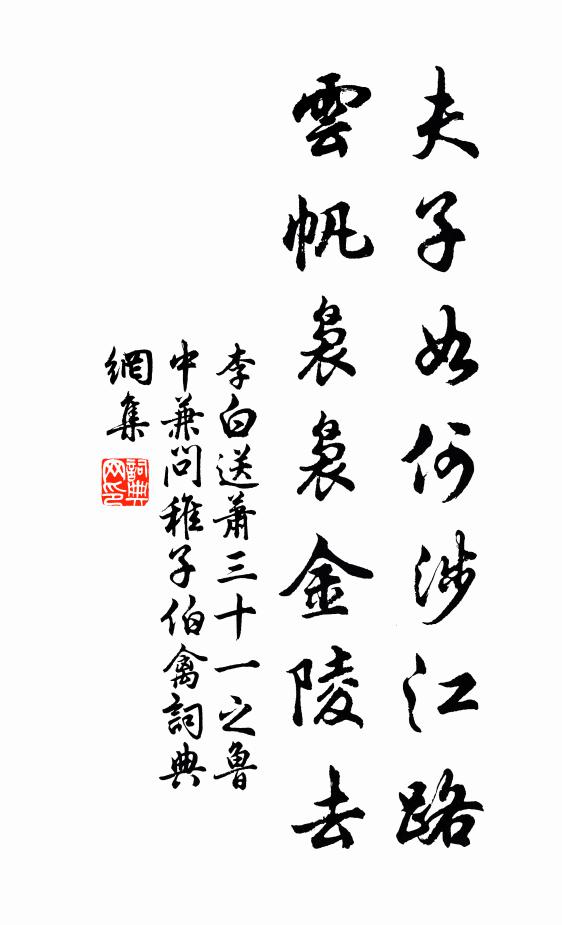 夫子如何涉江路
雲帆裊裊金陵去
李白送蕭三十一之魯
中兼問稚子伯禽詞典
網集
詞典
网印